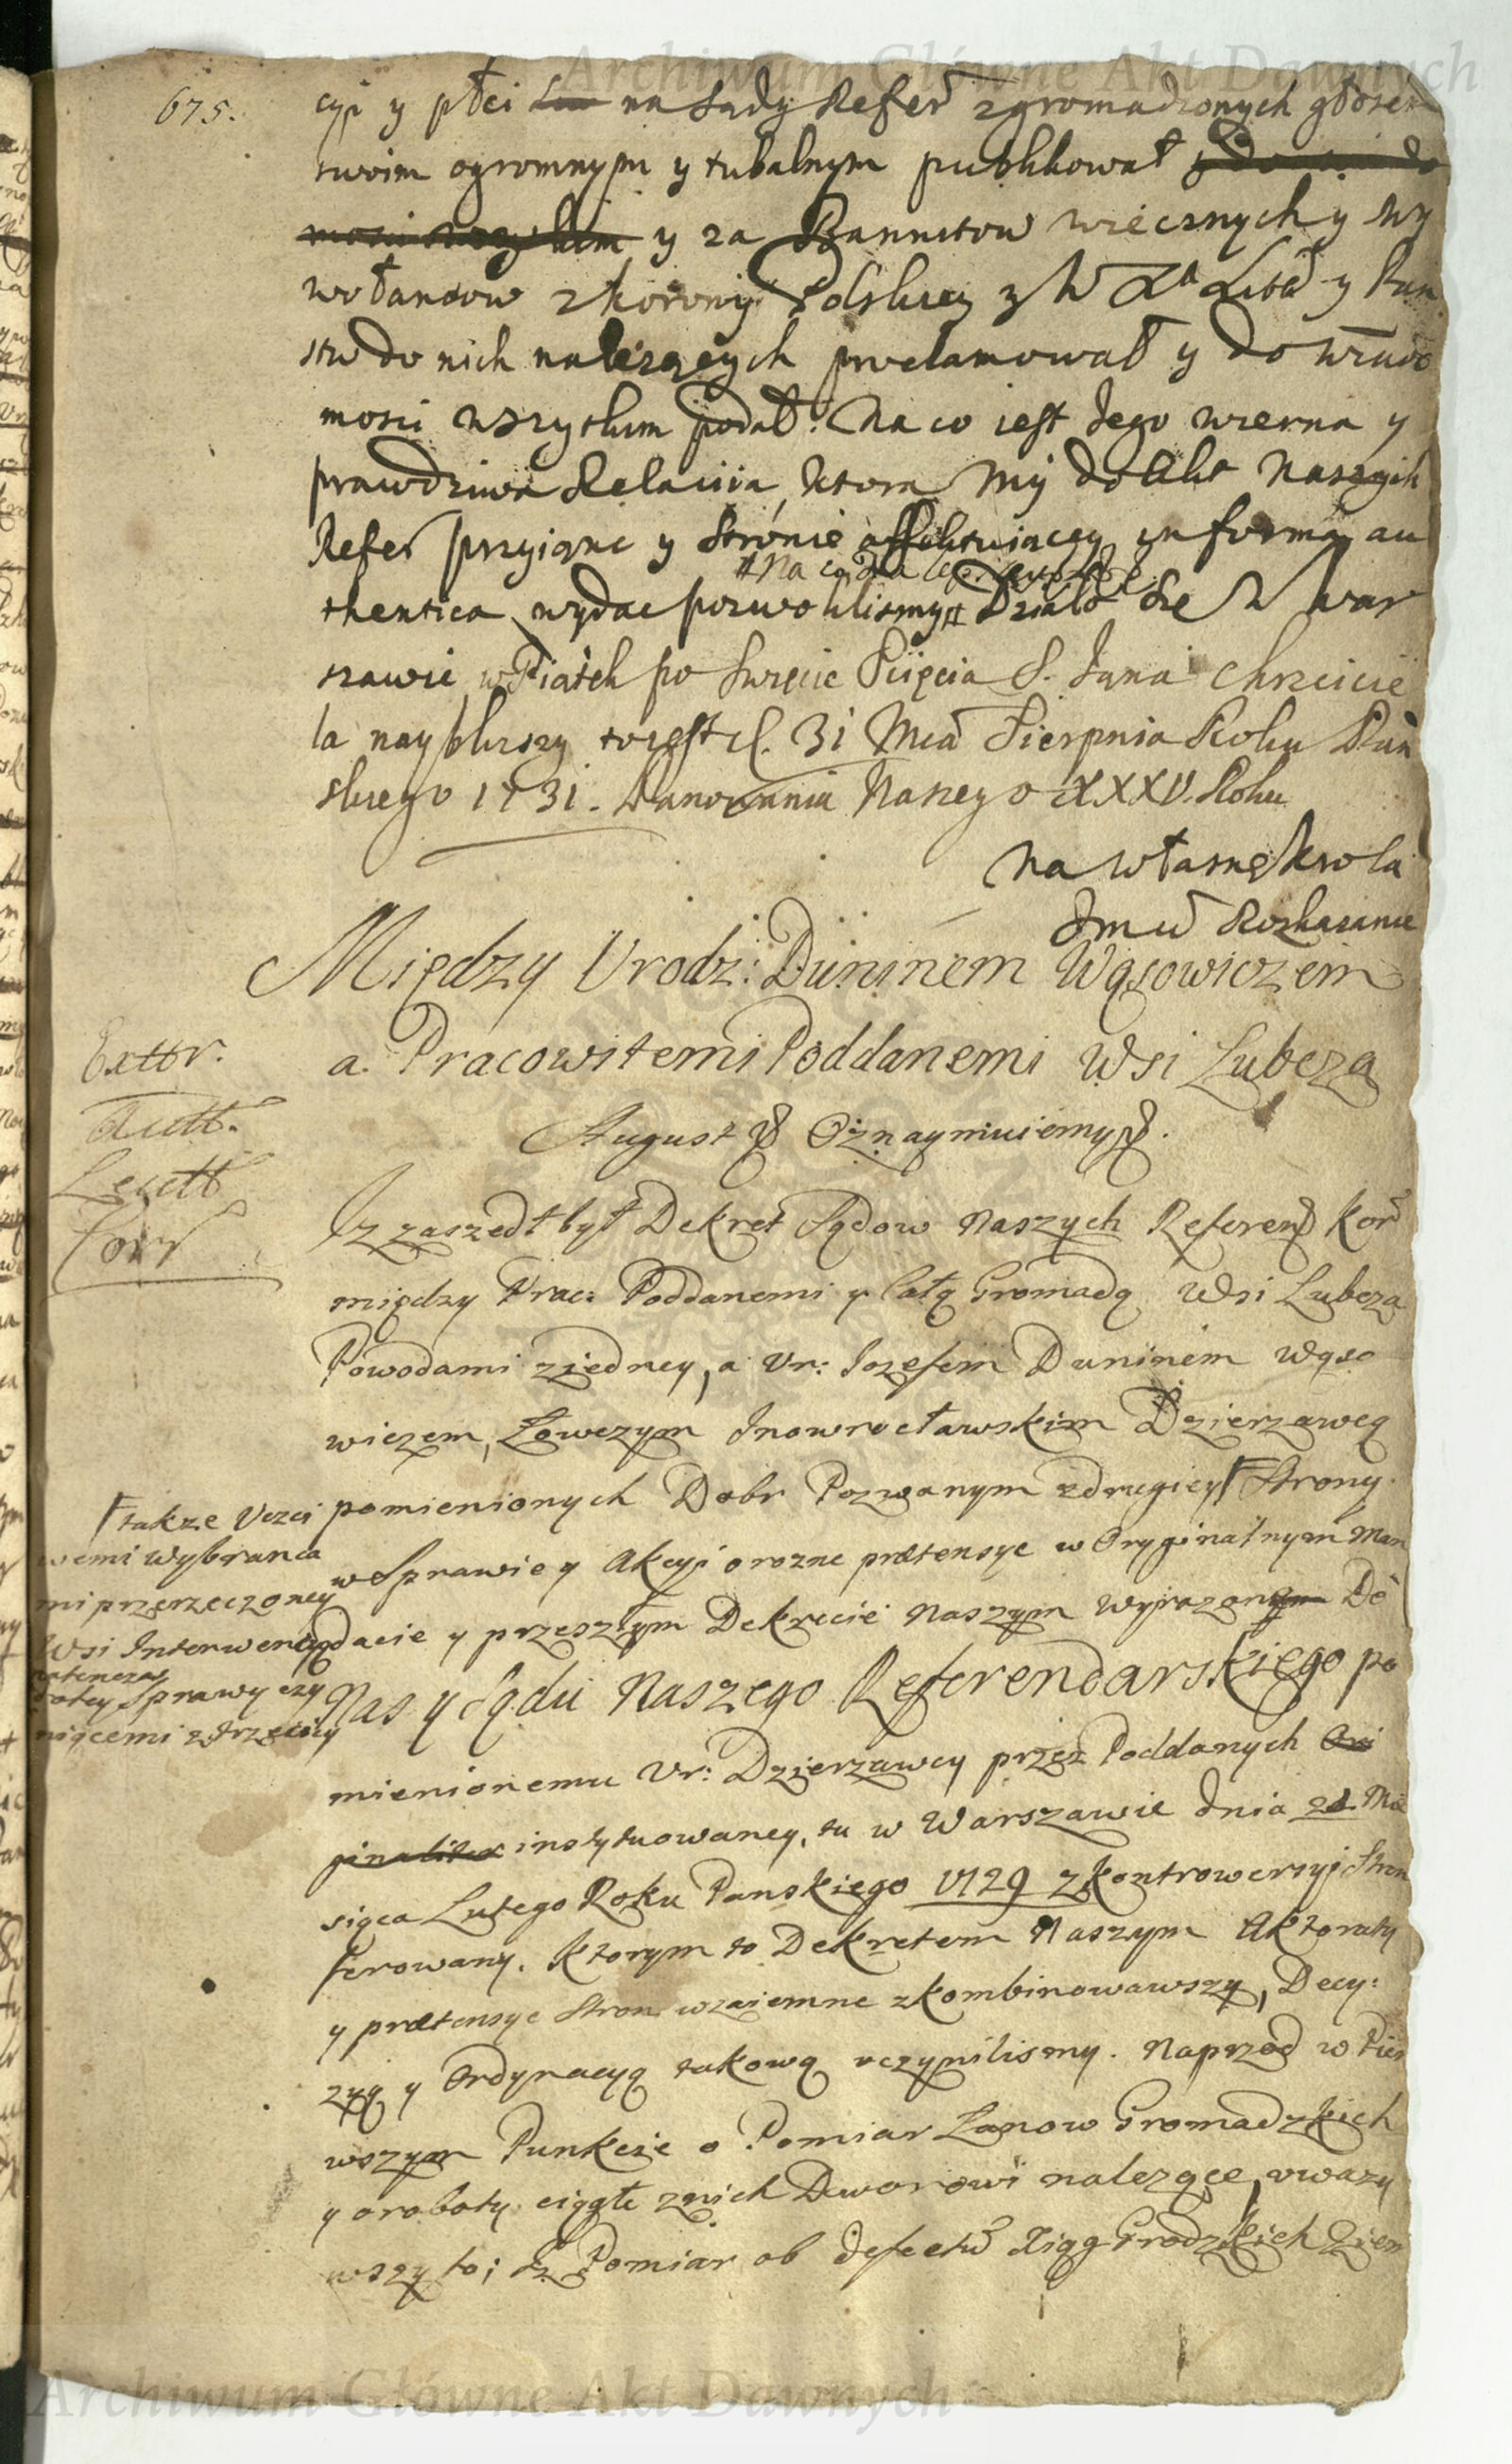 Archiwum Główne Akt Dawnych
675.
cyi y płci na Sądy Refer zgromadzonych głosem
swoim ogromnym y tubalnym publikował
y za Bannitow wiecznych y wy
wołancow z Korony Polskiey y W Xa Litt y Pan
stw do nich należących proclamował y do wiado
mosci wszytkim podał. Na co iest Jego wierna y
prawdziwa Relacija, ktora My do Akt Naszych
Refer przyiąc y Stronie affektuiącey in forma au
# Na co dla lepszey
thentica wydac pozwolilismy # Działo się w War
szawie w Piątek po Swięcie Scięcia S. Jana Chrzcicie
la nayblizszy to iest d. 31 Mca Sierpnia Roku Pan
skiego 1731. Panowania Naszego XXXV. Roku
Na własne Krola
Jmci Roskazanie
Między Vrodz: Duninem Wąsowiczem
a. Pracowitemi Poddanemi Wsi Lubcza
August Oznaymuiemy.
Extr.
Autt.
Lectt
Corr
Iz zaszedł był Dekret Sądow Naszych Referen Kor
między Prac: Poddanemi y Całą Gromadą Wsi Lubcza
Powodami z iedney, a Vr: Jozefem Duninem Wąso
wiczem, Łowczym Inowrocławskim Dzierzawcą
pomienionych Dobr Pozwanym z drugiey Γ Strony
Γ takze Vczci
wemi Wybranca
mi przerzeczoney
Wsi Interwenią
natenczas
do tey Sprawy czy
niącemi z trzeciey
w Sprawie y Akcyi o rozne prætensye w Oryginalnym Man
dacie y przeszłym Dekrecie Naszym wyrazon Do
Nas y Sądu Naszego Referendarskiego po
mienionemu Vr: Dzierzawcy przez Poddanych
instytuowaney, tu w Warszawie dnia 21 Mie
siąca Lutego Roku Panskiego 1729 z kontrowersyi Stron
ferowany. Ktorym to Dekretem Naszym Aktoraty
y prætensye Stron wzaiemne zkombinowawszy, Decy:
zyą y Ordynacyą takową vczynilismy. Naprzod w Pier
wszym Punkcie o Pomiar Łanow Gromadzkich
y o roboty ciągłe z nich Dworowi nalezące, vwazy
wszy to; Iz Pomiar ob defectu Xiąg Grodzkich Ziem
Archiwum Główne Akt Dawnych